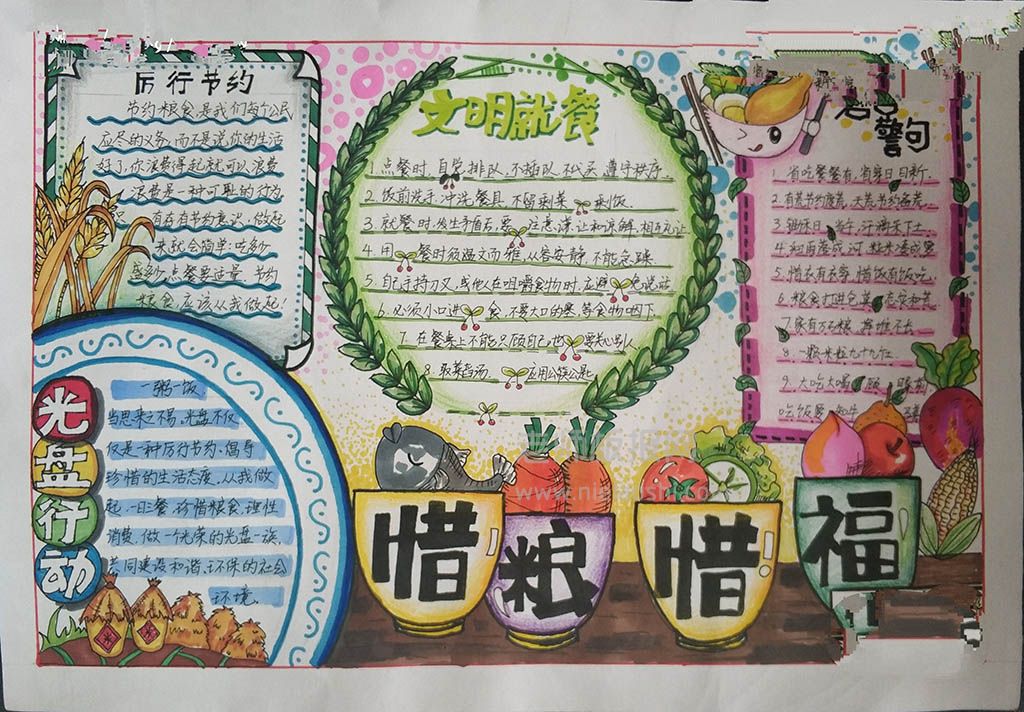 厉行节约
节约粮食是我们每个公民
应尽的义务,而不是说你的生活
好了,你浪费得起就可以浪费
浪费是一种可耻的行为
有节约意识,做起
来就会简单:吃多少
点餐要适量,节约
粮食,应该从我做起!
光盘行动
一粥一饭,
当思来之不易,光盘不仅
仅是一种厉行节约、倡导
珍惜的生活态度,从我做
起,一日三餐,珍惜粮食,理性
消费,做一个光荣的光盘一族,
共同建设和谐、环保的社会
环境。
文明就餐
1.点餐时,自觉排队,不插队,不代买,遵守秩序.
2.饭前洗手,冲洗餐具,不留剩菜 剩饭.
3.就餐时,发生矛盾后,要 注意谦让和谅解,相互礼让
4.用 餐时须温文尔雅,从容安静,不能急躁.
5.自己手持刀叉,或他人在咀嚼食物时,应避 免说话
6.必须小口进 食,不要大口的塞,等食物咽下.
7.在餐桌上不能只顾自己,也 要关心别人
8.取菜舀汤, 应用公筷公匙
名言警句
1.省吃餐餐有,省穿日日新.
2.有荒节约度荒,无荒节约备荒.
3. 汗滴禾下土.
4.细雨落成河,粒米凑成箩
5.惜衣有衣穿,惜饭有饭吃.
6.粮食打进仓,莫忘灾和荒
7.家有万石粮,
8.一颗米粒九十九
9.大吃大喝 眼前
吃饭
惜粮惜福